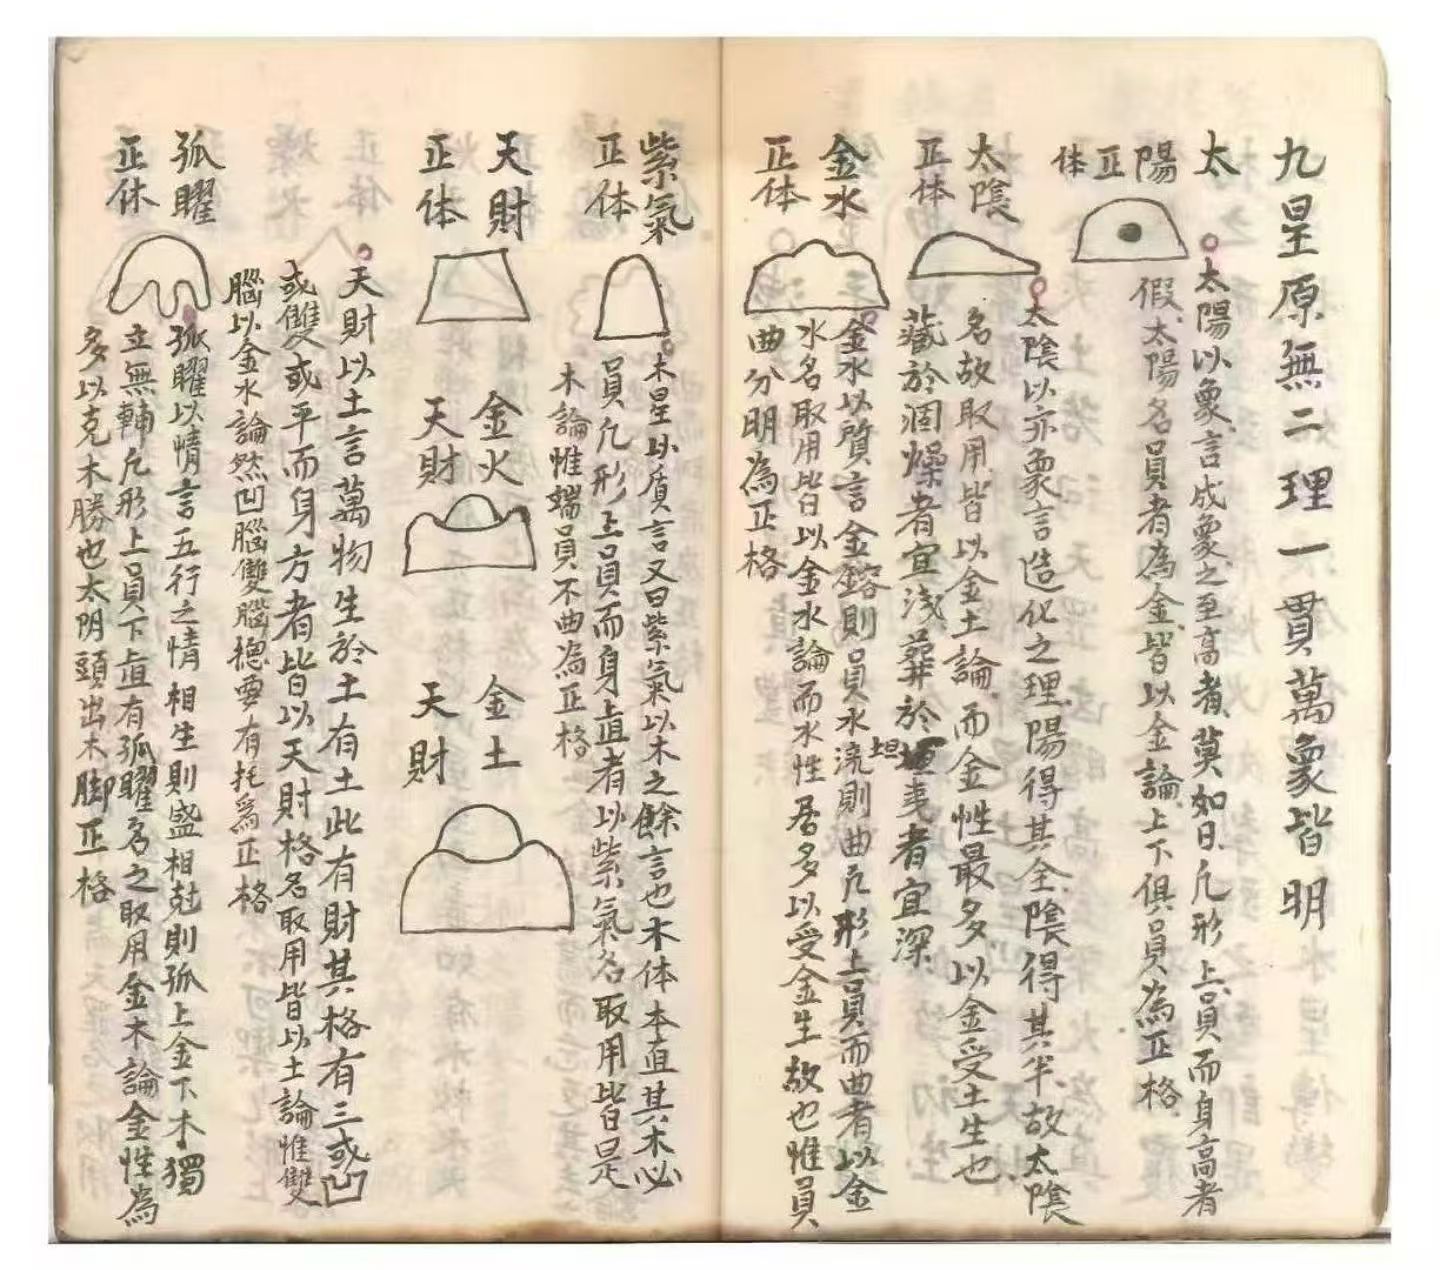 九星原無二理一貫萬象皆明
太陽正体
太陽以象言成象之至高者莫如日凢形上員而身高者
假太陽名員者為金皆以金論上下俱員為正格
太陰
正体
太陰以亦象言造化之理陽得其全陰得其半故太陰
名故取用皆以金土論而金性最多以金受土生也
藏於涸燥者宜浅葬於坦夷者宜深
金水
正体
金水以質言金鎔則員水流則曲凢形上員而曲者以金
水名取用皆以金水論而水性居多以受金生故也惟員
曲分明為正格
紫氣
正体
木星以质言又曰紫氣以木之餘言也木体本直其木必
員凢形上員而身直者以紫氣名取用皆是
木論惟端員不曲為正格
天財
正体
金火
天財
金土
天財
天財以土言萬物生於土有土此有財其格有三或凹
或雙或平而身方者皆以天財格名取用皆以土論惟雙
腦以金水論然凹腦雙腦揔要有托為正格
孤曜
正体
孤曜以情言五行之情相生則盛相尅則孤上金下木獨
立無輔凢形上員下直有孤曜名之取用金木論金性為
多以克木勝也太阴頭出木脚正格